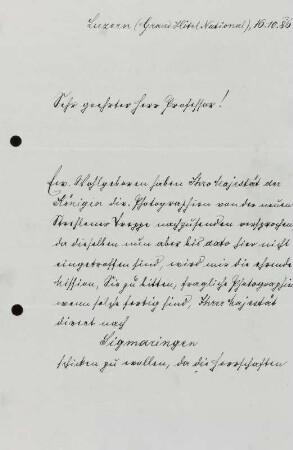 Luzern (Grand Hôtel National), 16.10.86
Sehr geehrter Herr Professor!
Ew. Wohlgeboren haben Ihrer Majestät der
Königin die Photographien von der neuen
Strehlener Treppe nachzusenden versprochen
da dieselben nun aber bis dato hier nicht
eingetroffen sind, wird mir die ehrende
Mission, Sie zu bitten, fragliche Photographien
wenn solche fertig sind, Ihrer Majestät
direct nach
Sigmaringen
schicken zu wollen, da die Herrschaften